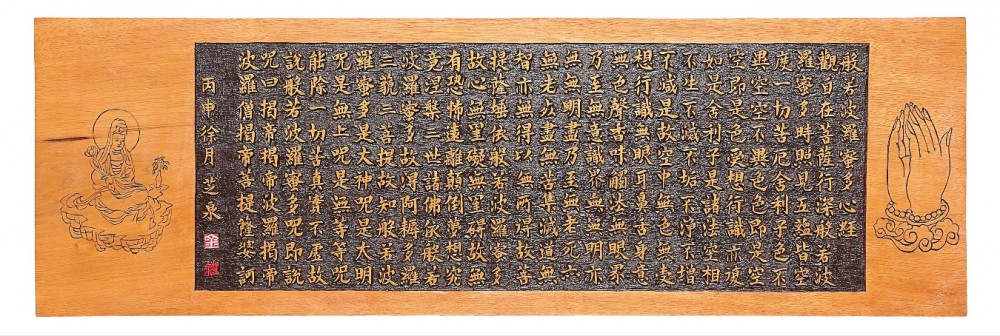 般若波羅蜜多心經
觀自在菩薩行深般若波
羅蜜多時照見五蘊皆空
度一切苦厄舍利子色不
異空空不異色色即是空
空即是色受想行識亦復
如是舍利子是諸法空相
不生不滅不垢不淨不增
不減是故空中無色無受
想行識無眼耳鼻舌身意
無色聲香味觸法無眼界
乃至無意識界無無明亦
無無明盡乃至無老死亦
無老死盡無苦集滅道無
智亦無得以無所得故菩
提薩埵依般若波羅蜜多
故心無罣礙無罣礙故無
有恐怖遠離顛倒夢想究
竟涅槃三世諸佛依般若
波羅蜜多故得阿耨多羅
三藐三菩提故知般若波
羅蜜多是大神咒是大明
咒是無上咒是無等等咒
能除一切苦真實不虛故
說般若波羅蜜多咒即說
咒曰揭帝揭帝波羅揭帝
波羅僧揭帝菩提薩婆訶
丙申徐月 芝泉